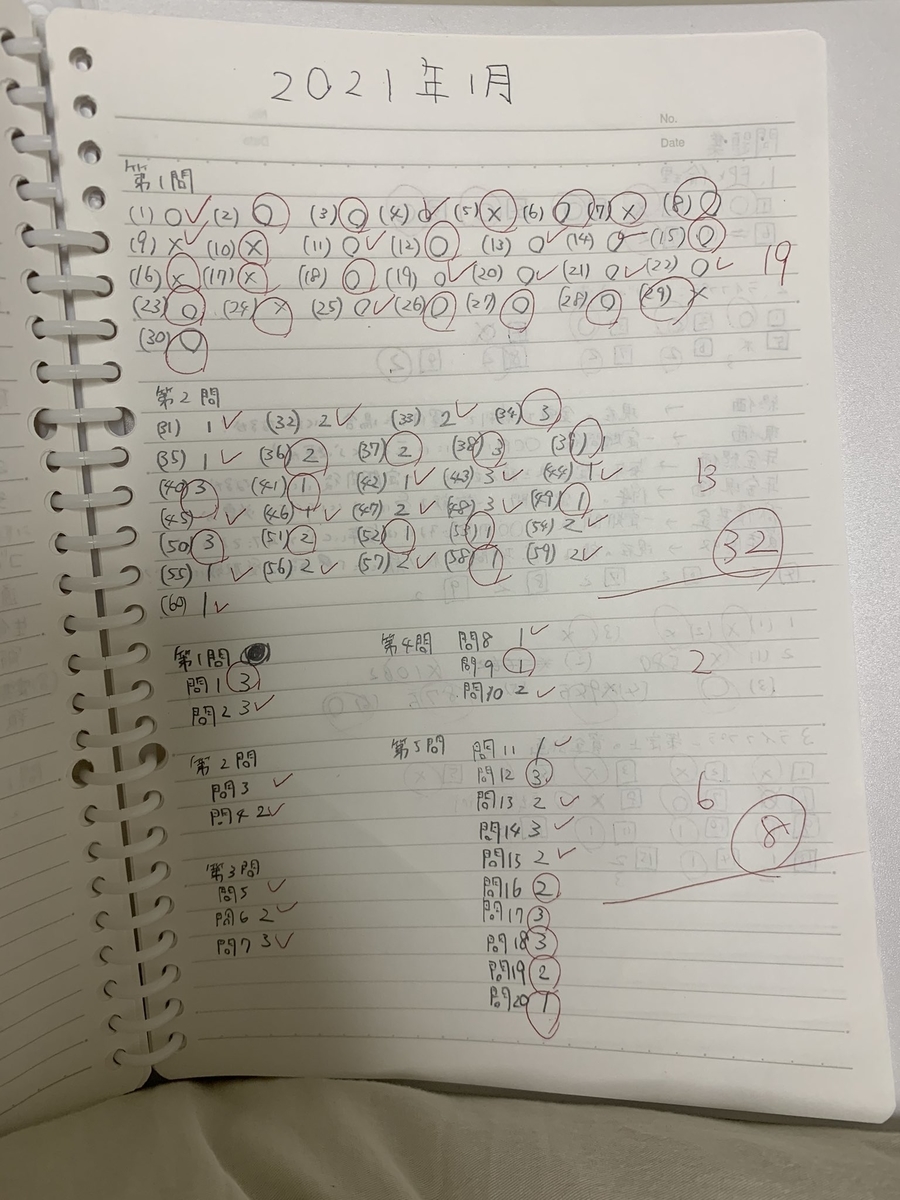 2021年1月
No.
Date
第1問
(1) ○ (2) ○ (3) ○ (4) ○ (5) × (6) ○ (7) × (8) ○
(9) × (10) × (11) ○ (12) ○ (13) ○ (14) ○ (15) ○
(16) × (17) × (18) ○ (19) ○ (20) ○ (21) ○ (22) ○ 19
(23) ○ (24) × (25) ○ (26) ○ (27) ○ (28) ○ (29) ×
(30) ○
第2問
(31) 1 (32) 2 (33) 2 (34) 3
(35) 1 (36) 2 (37) 2 (38) 3 (39) 1
(40) 3 (41) 1 (42) 1 (43) 3 (44) 1 13
(45) 1 (46) 1 (47) 2 (48) 3 (49) 1
(50) 3 (51) 2 (52) 1 (53) 1 (54) 2 32
(55) 1 (56) 2 (57) 2 (58) 1 (59) 2
(60) 1
第1問
問1 3
問2 3
第2問
問3
問4 2
第3問
問5
問6 2
問7 3
第4問 問8 1
問9 1 2
問10 2
第5問 問11 1
問12 3
問13 2 6
問14 3 8
問15 2
問16 2
問17 3
問18 3
問19 2
問20 1